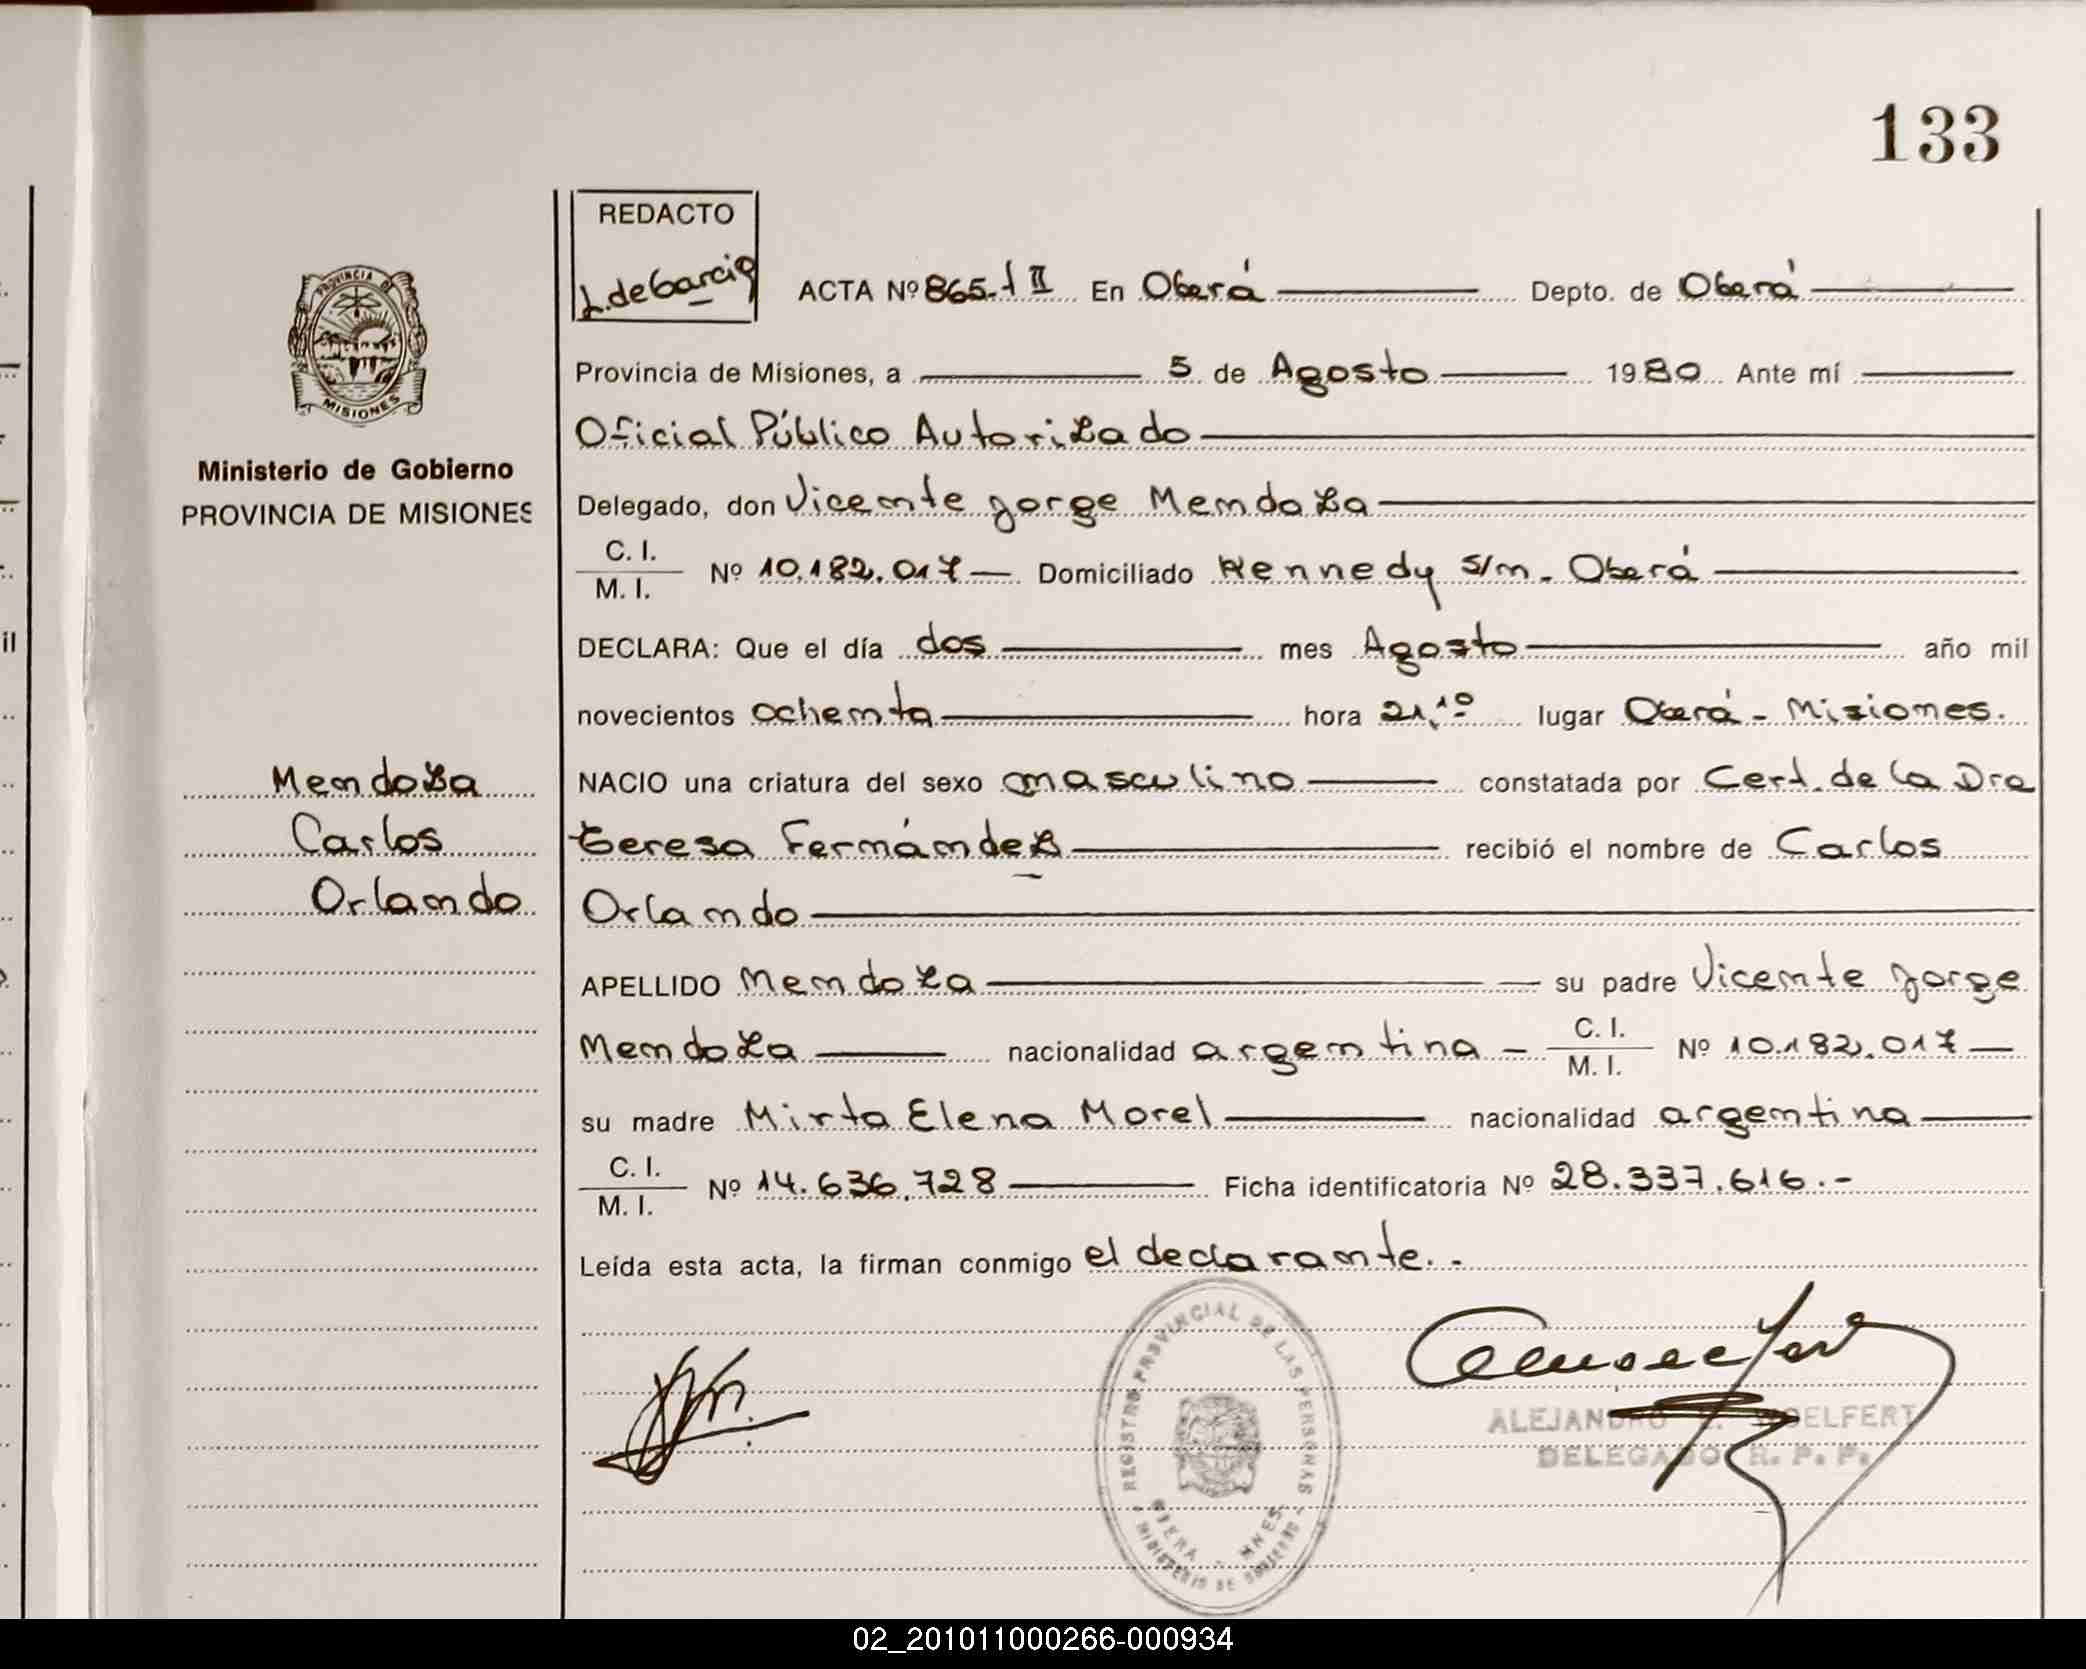 133
REDACTO
L. de Garcia
ACTA Nº 865. t II En Oberá Depto. de Oberá
PROVINCIA DE
MISIONES
Provincia de Misiones, a 5 de Agosto 1980 Ante mí
Oficial Público Autorizado
Ministerio de Gobierno
PROVINCIA DE MISIONES
Delegado, don Vicente Jorge Mendoza
C. I.
M. I. Nº 10.182.017 Domiciliado Kennedy s/n. Oberá
DECLARA: Que el día dos mes Agosto año mil
novecientos ochenta hora 21,10 lugar Oberá - Misiones.
Mendoza
Carlos
Orlando
NACIO una criatura del sexo masculino constatada por Cert. de la Dra
Teresa Fernández recibió el nombre de Carlos
Orlando
APELLIDO Mendoza su padre Vicente Jorge
Mendoza nacionalidad argentina - C. I.
M. I. Nº 10.182.017
su madre Mirta Elena Morel nacionalidad argentina
C. I.
M. I. Nº 14.636.728 Ficha identificatoria Nº 28.337.616.-
Leída esta acta, la firman conmigo el declarante.-
REGISTRO PROVINCIAL DE LAS PERSONAS
OBERA - MNES.
MINISTERIO DE GOBIERNO
ALEJANDRO WOELFERT
DELEGADO R. P. P.
02_201011000266-000934